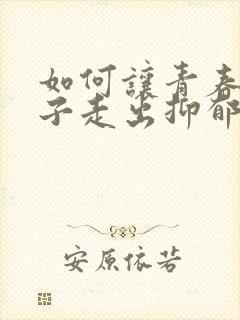 如何讓青春
子走出抑郁
安原依若